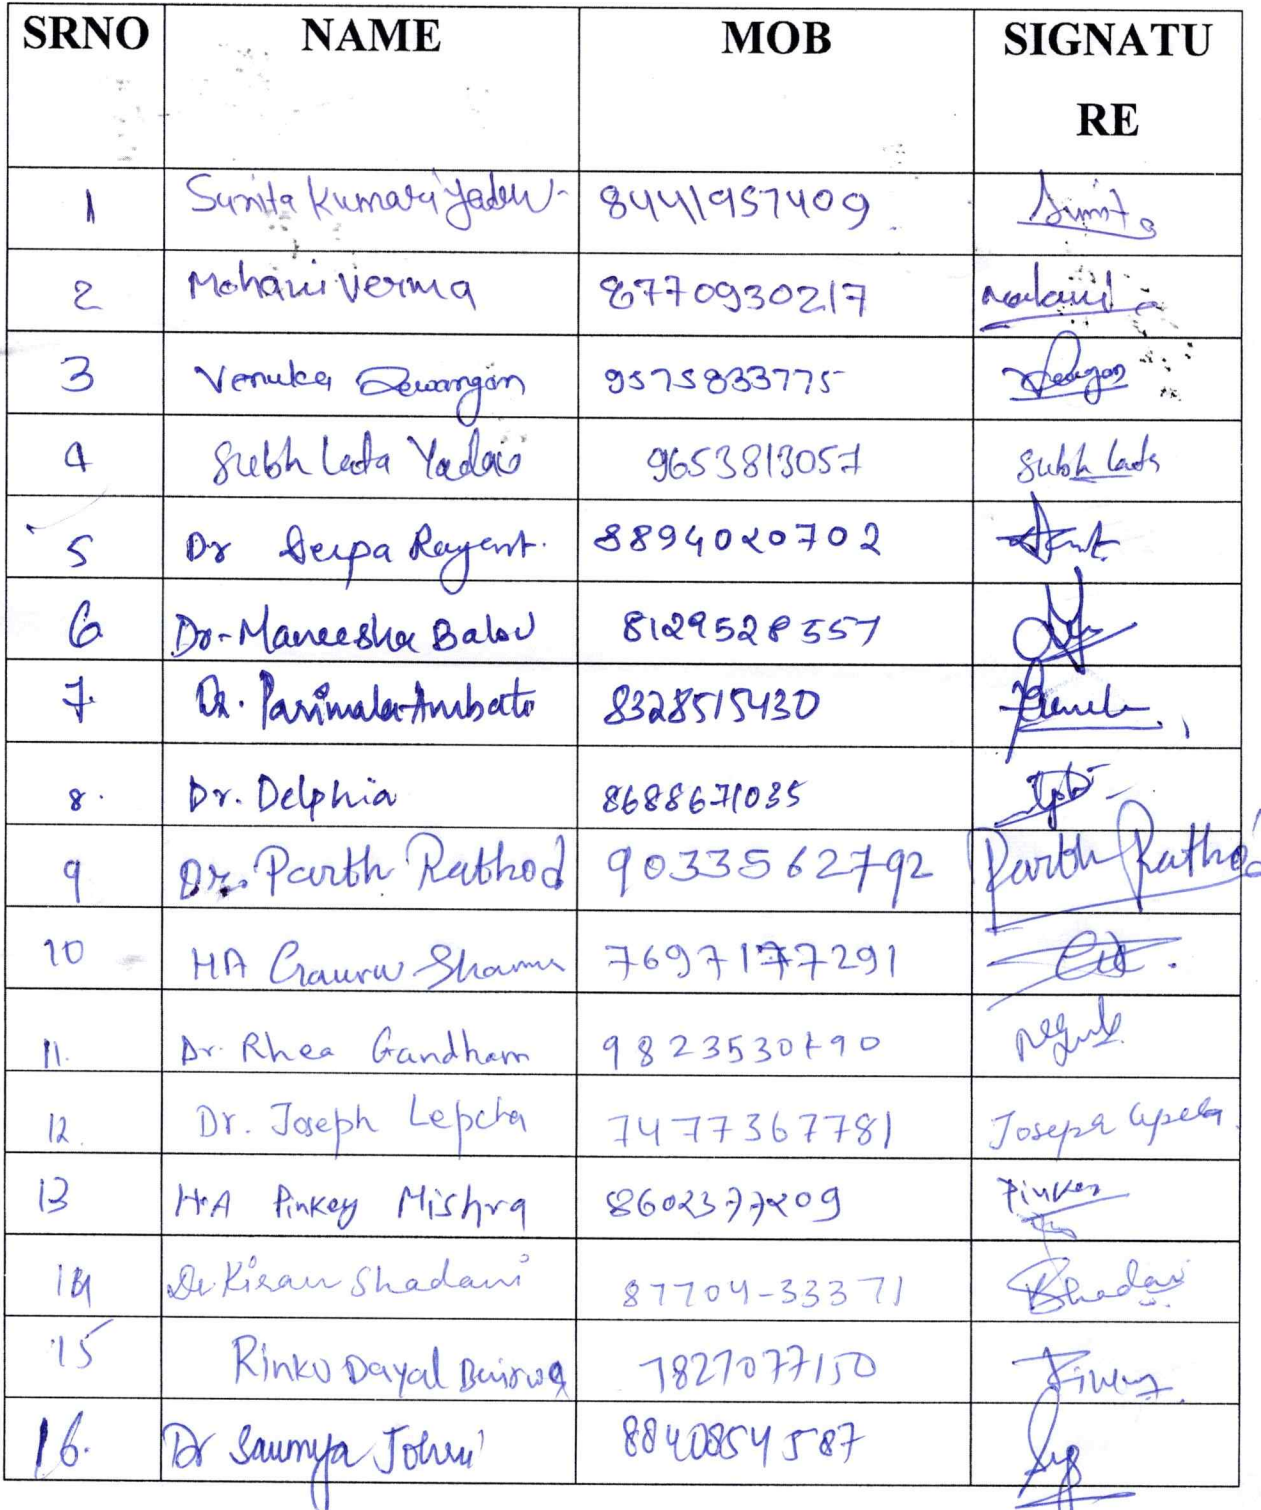 SRNO NAME MOB SIGNATU
RE
1 Sunita Kumari Yadav 8441957409 Sunita
2 Mohani Verma 8770930217 Mohani
3 Venuka Dewangan 9575833775
4 Subh Lata Yadav 9653813057 Subh Lata
5 Dr Deepa Rayent. 8894020702
6 Dr-Maneesha Balou 8129528557
7. Dr. Parimala Ambati 8328515430
8. Dr. Delphia 8688671035
9 Dr. Parth Rathod 9033562792 Parth Rathod
10 HA Gaurav Sharma 7697177291
11. Dr. Rhea Gandham
12. Dr. Joseph Lepcha 7477367781 Joseph Lepcha
13 H.A Pinkey Mishra 8602377209 Pinkey
14 Dr Kiran Shadani 87704-33371
15 Rinku Dayal Bairwa 7827077150
16. Dr Saumya Johri 8840854587